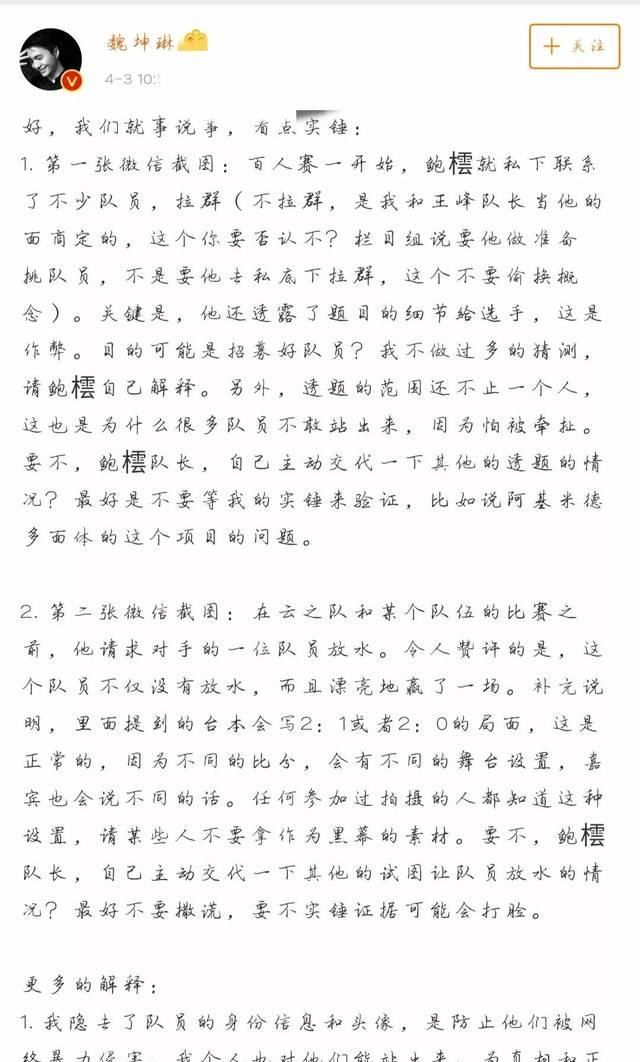 魏坤琳
+ 关注
4-3 10:
好，我们就事说事，看点实锤：
1. 第一张微信截图：百人赛一开始，鲍橒就私下联系
了不少队员，拉群（不拉群，是我和王峰队长当他的
面商定的，这个你要否认不？栏目组说要他做准备
挑队员，不是要他去私底下拉群，这个不要偷换概
念）。关键是，他还透露了题目的细节给选手，这是
作弊。目的可能是招募好队员？我不做过多的猜测，
请鲍橒自己解释。另外，透题的范围还不止一个人，
这也是为什么很多队员不敢站出来，因为怕被牵扯。
要不，鲍橒队长，自己主动交代一下其他的透题的情
况？最好是不要等我的实锤来验证，比如说阿基米德
多面体的这个项目的问题。
2. 第二张微信截图：在云之队和某个队伍的比赛之
前，他请求对手的一位队员放水。令人赞许的是，这
个队员不仅没有放水，而且漂亮地赢了一场。补充说
明，里面提到的台本会写2：1或者2：0的局面，这是
正常的，因为不同的比分，会有不同的舞台设置，嘉
宾也会说不同的话。任何参加过拍摄的人都知道这种
设置，请某些人不要拿作为黑幕的素材。要不，鲍橒
队长，自己主动交代一下其他的试图让队员放水的情
况？最好不要撒谎，要不实锤证据可能会打脸。
更多的解释：
1. 我隐去了队员的身份信息和头像，是防止他们被网
络暴力侵害，我个人也对他们能站出来，为真相和正